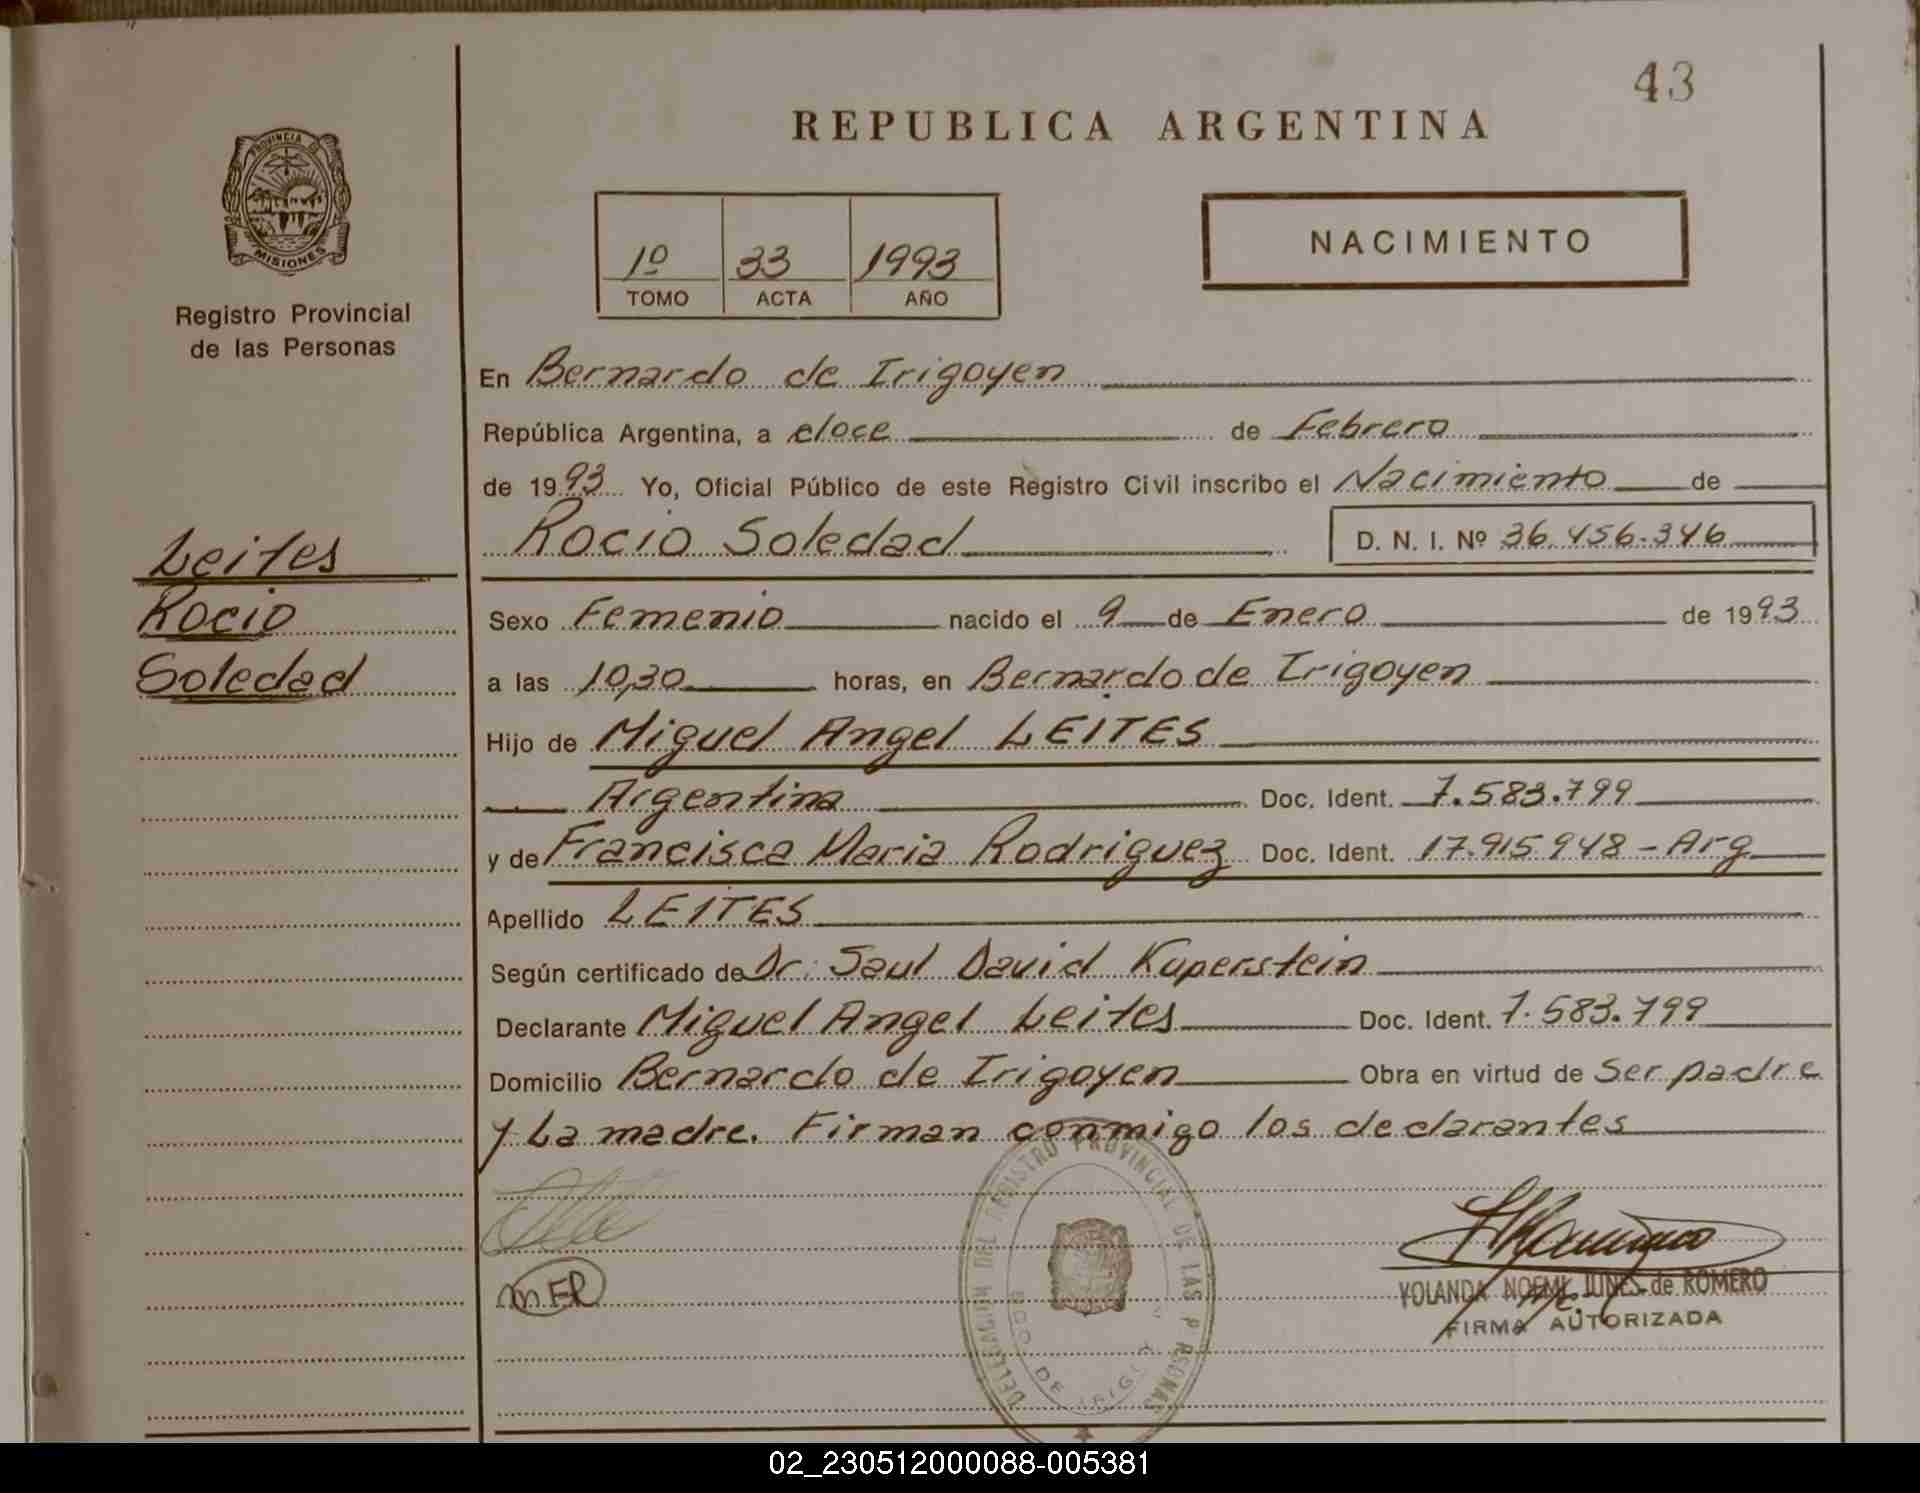 43
REPUBLICA ARGENTINA
PROVINCIA DE
MISIONES
Registro Provincial
de las Personas
1º 33 1993
TOMO ACTA AÑO
NACIMIENTO
En Bernardo de Irigoyen
República Argentina, a doce de Febrero
de 1993 Yo, Oficial Público de este Registro Civil inscribo el Nacimiento de
Rocio Soledad D. N. I. Nº 36.456.346
Leites
Rocio
Soledad
Sexo Femenio nacido el 9 de Enero de 1993
a las 10,30 horas, en Bernardo de Irigoyen
Hijo de Miguel Angel LEITES
Argentina Doc. Ident. 7.583.799
y de Francisca Maria Rodriguez Doc. Ident. 17.915.948 - Arg
Apellido LEITES
Según certificado de Dr: Saul David Kuperstein
Declarante Miguel Angel Leites Doc. Ident. 7.583.799
Domicilio Bernardo de Irigoyen Obra en virtud de Ser padre
y La madre. Firman conmigo los declarantes
DELEGACION DEL REGISTRO PROVINCIAL DE LAS PERSONAS
BDO. DE IRIGOYEN
MER
YOLANDA NOEMI JUNES de ROMERO
FIRMA AUTORIZADA
02_230512000088-005381